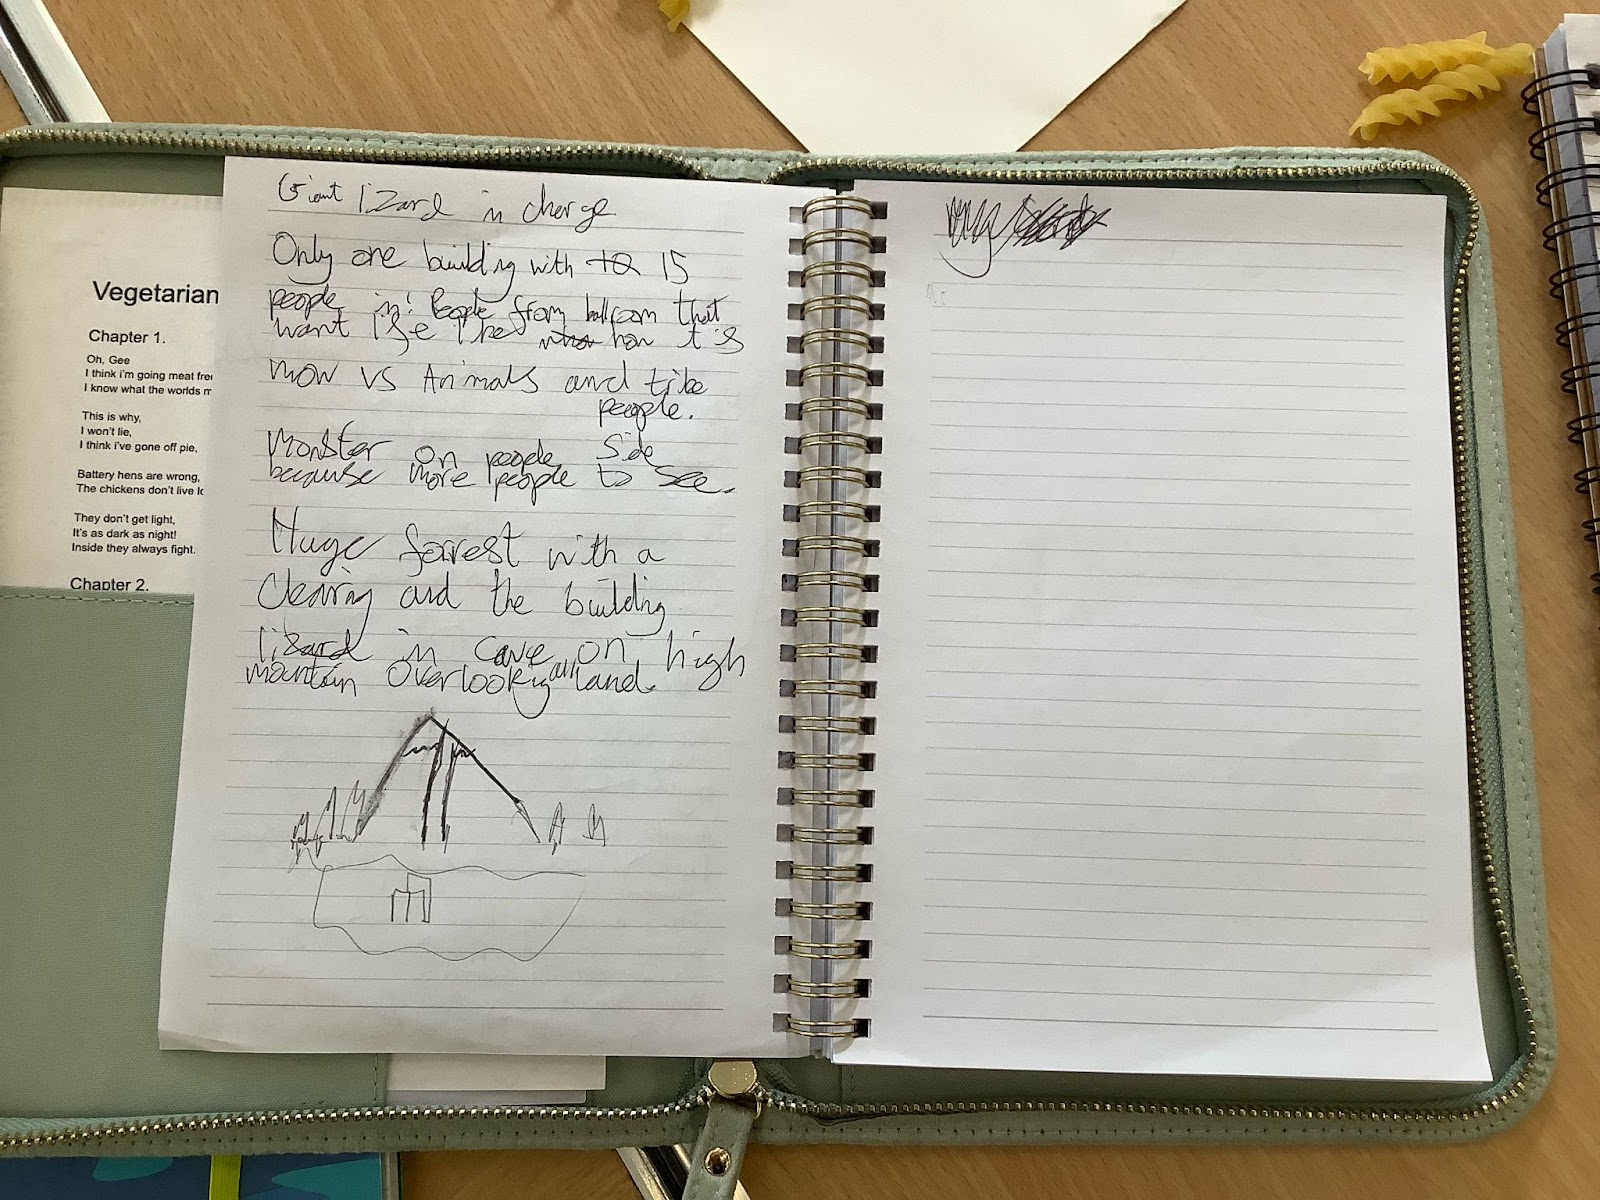 Vegetarian
Chapter 1.
Oh, Gee
I think i'm going meat free
I know what the worlds m
This is why,
I won't lie,
I think i've gone off pie,
Battery hens are wrong,
The chickens don't live lo
They don't get light,
It's as dark as night!
Inside they always fight.
Chapter 2.
Giant lizard in charge
Only one building with 15
people in! People from ballroom that
want life like how it is
now vs Animals and tribe
people.
Monster on people side
because more people to see.
Huge forrest with a
Clearing and the building
lizard in cave on high
mountain overlooking all land.